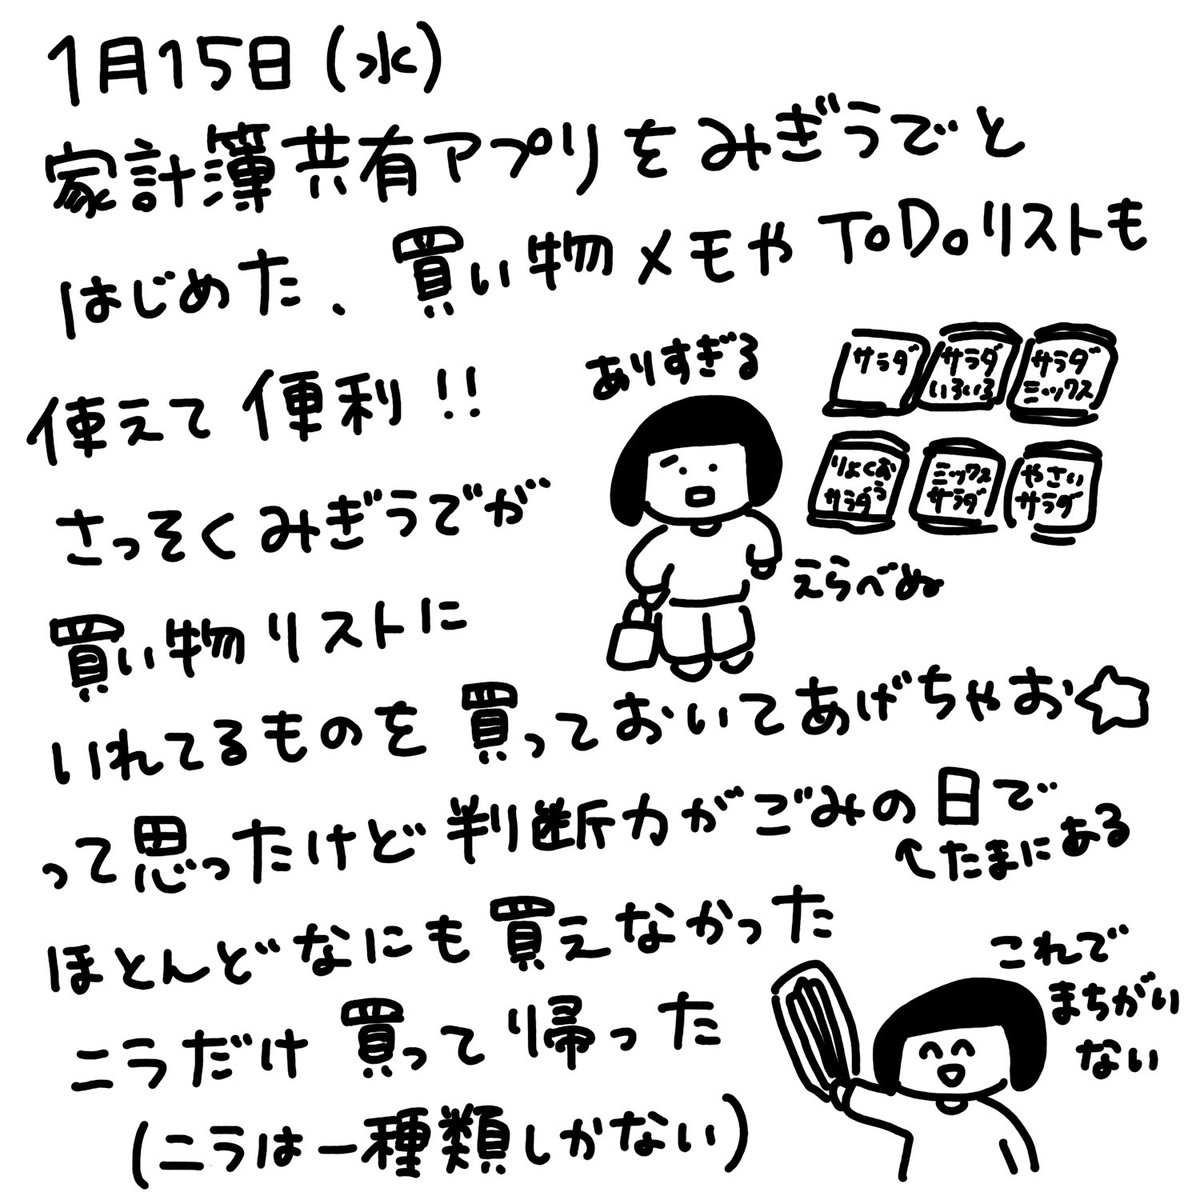 1月15日(水)
家計簿共有アプリをみぎうでと
はじめた、買い物メモやToDoリストも
使えて便利!!
ありすぎる
サラダ
サラダ
いろいろ
サラダ
ミックス
りょくおう
サラダ
ミックス
サラダ
やさい
サラダ
えらべぬ
さっそくみぎうでが
買い物リストに
いれてるものを買っておいてあげちゃお☆
って思ったけど判断力がごみの日で
←たまにある
ほとんどなにも買えなかった
ニラだけ買って帰った
(ニラは一種類しかない)
これで
まちがい
ない